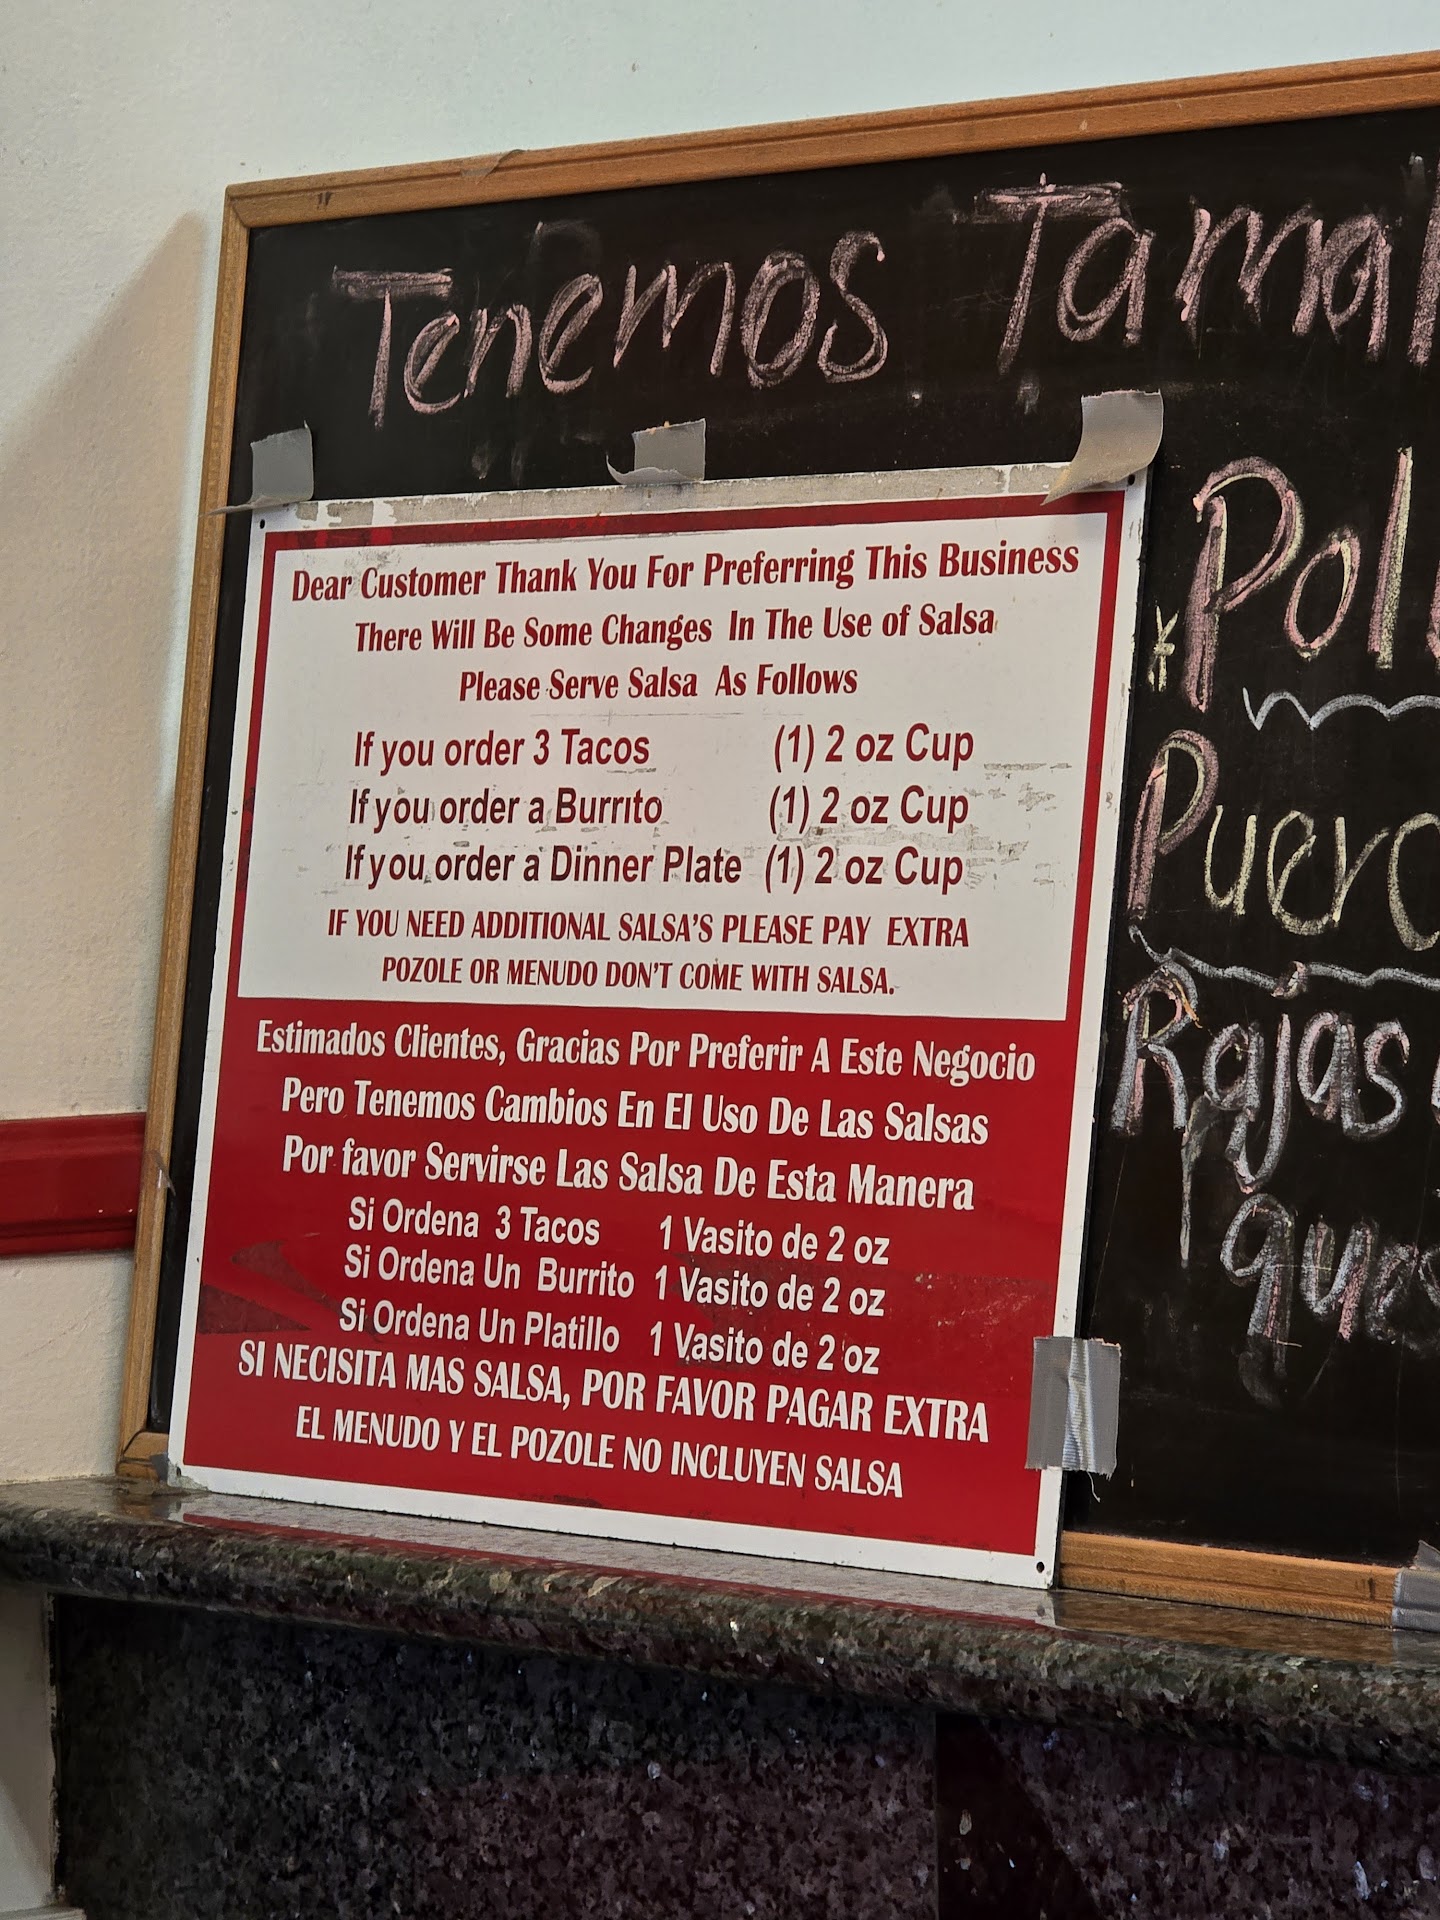 Tenemos
Dear Customer Thank You For Preferring This Business
There Will Be Some Changes In The Use of Salsa
Please Serve Salsa As Follows
If you order 3 Tacos (1) 2 oz Cup
If you order a Burrito (1) 2 oz Cup
If you order a Dinner Plate (1) 2 oz Cup
IF YOU NEED ADDITIONAL SALSA'S PLEASE PAY EXTRA
POZOLE OR MENUDO DON'T COME WITH SALSA.
Estimados Clientes, Gracias Por Preferir A Este Negocio
Pero Tenemos Cambios En El Uso De Las Salsas
Por favor Servirse Las Salsa De Esta Manera
Si Ordena 3 Tacos 1 Vasito de 2 oz
Si Ordena Un Burrito 1 Vasito de 2 oz
Si Ordena Un Platillo 1 Vasito de 2 oz
SI NECISITA MAS SALSA, POR FAVOR PAGAR EXTRA
EL MENUDO Y EL POZOLE NO INCLUYEN SALSA
Rajas